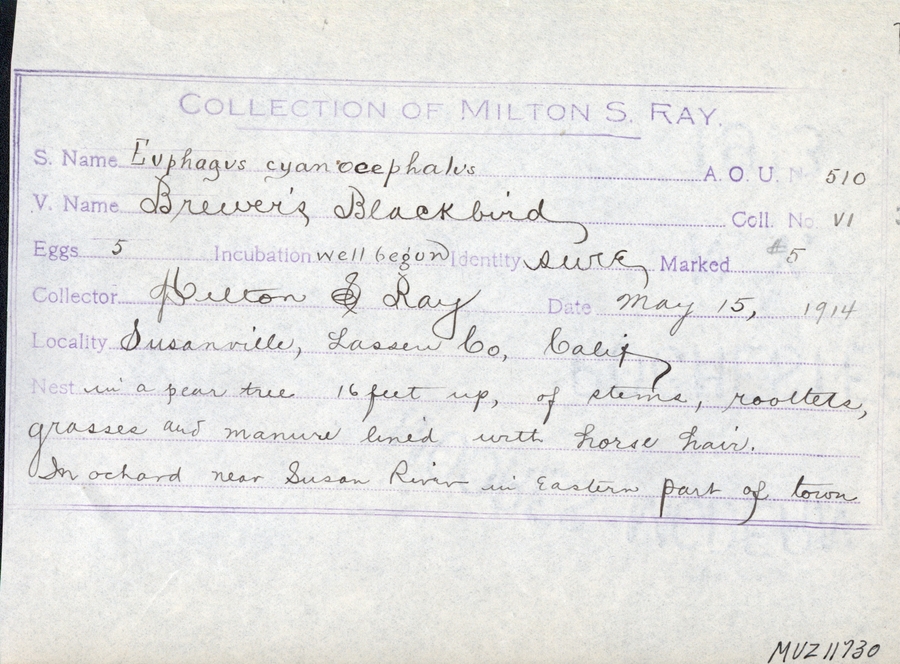 COLLECTION OF MILTON S. RAY.
S. Name Euphagus cyanocephalus A. O. U. N 510
V. Name Brewer's Blackbird Coll. No VI
Eggs 5 Incubation well begun Identity sure Marked #5
Collector Milton S Ray Date May 15, 1914
Locality Susanville, Lassen Co, Calif
Nest in a pear tree 16 feet up, of stems, rootlets,
grasses and manure lined with horse hair.
In ochard near Susan River in Eastern part of town
MVZ 11730